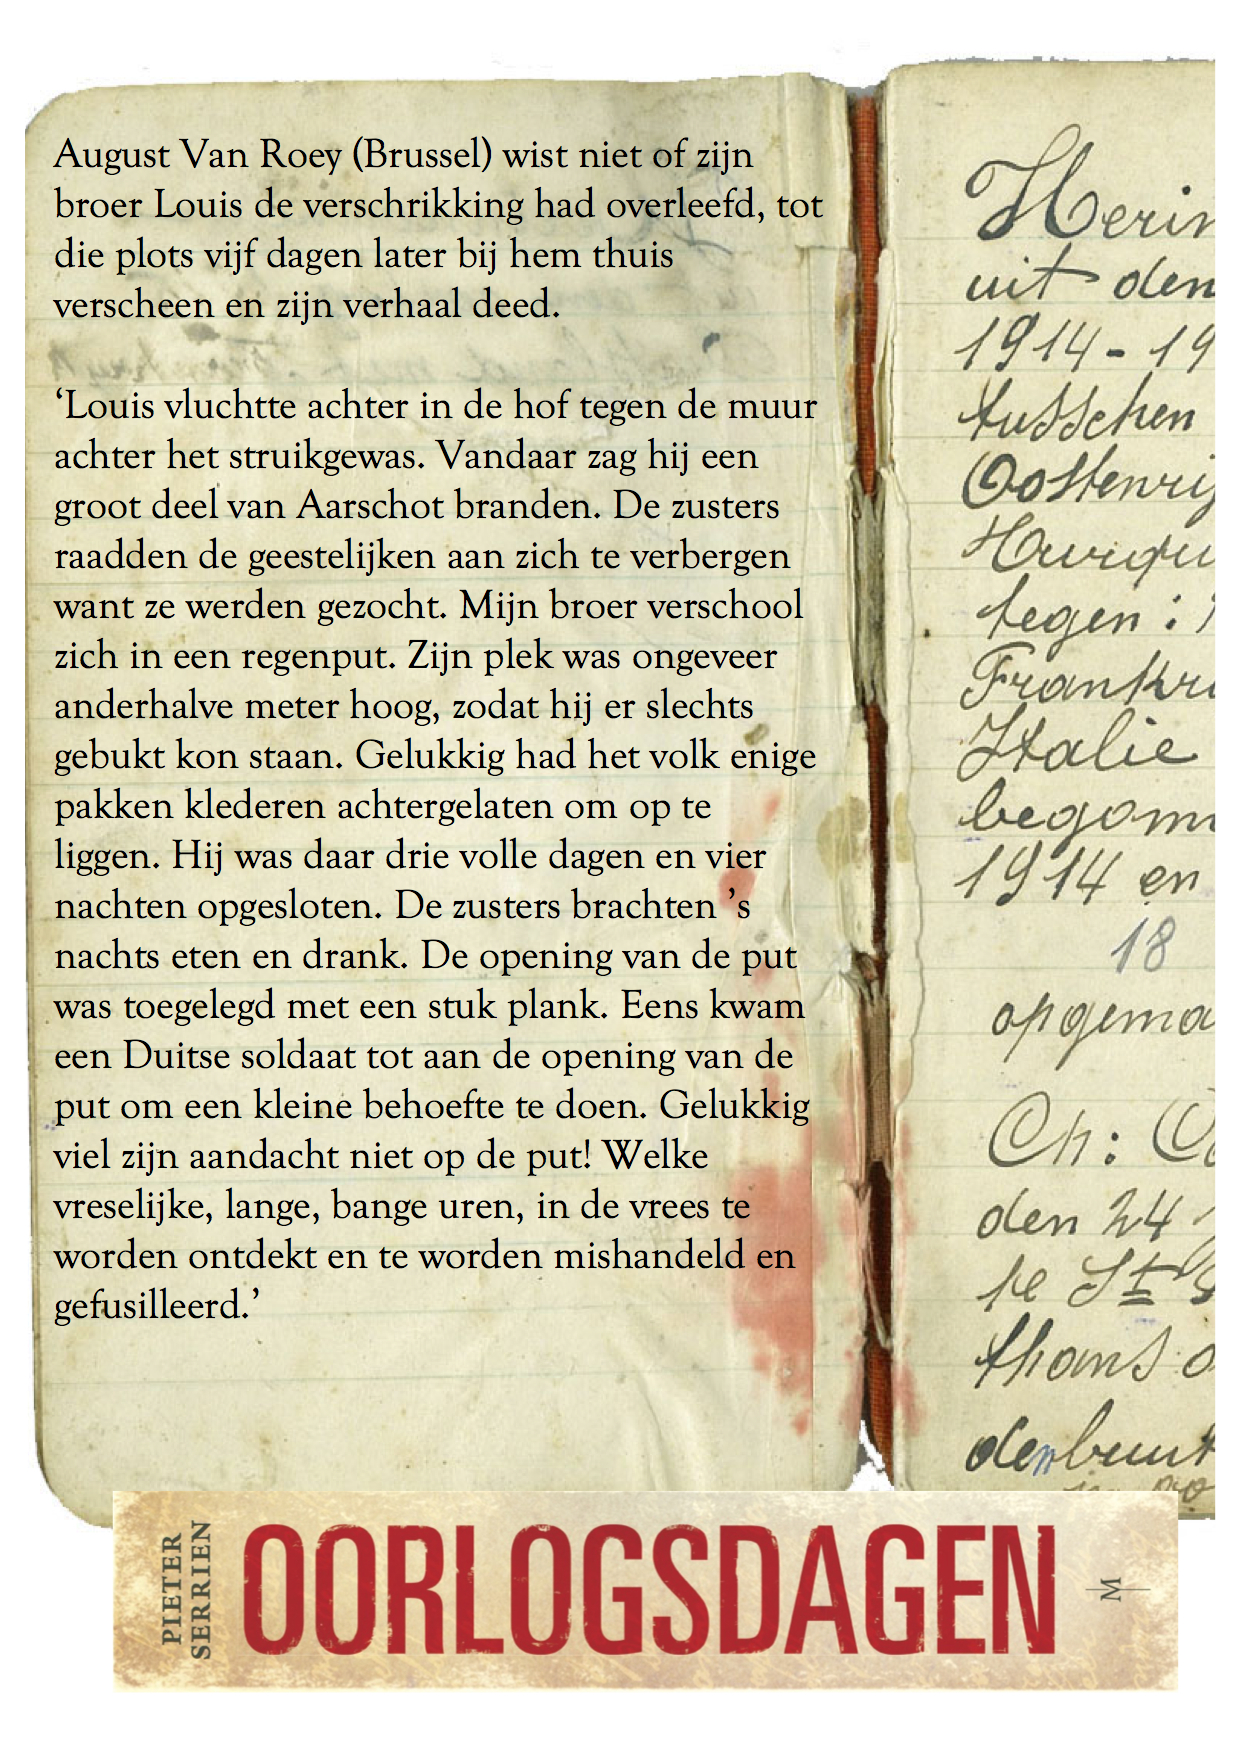 August Van Roey (Brussel) wist niet of zijn
broer Louis de verschrikking had overleefd, tot
die plots vijf dagen later bij hem thuis
verscheen en zijn verhaal deed.
‘Louis vluchtte achter in de hof tegen de muur
achter het struikgewas. Vandaar zag hij een
groot deel van Aarschot branden. De zusters
raadden de geestelijken aan zich te verbergen
want ze werden gezocht. Mijn broer verschool
zich in een regenput. Zijn plek was ongeveer
anderhalve meter hoog, zodat hij er slechts
gebukt kon staan. Gelukkig had het volk enige
pakken klederen achtergelaten om op te
liggen. Hij was daar drie volle dagen en vier
nachten opgesloten. De zusters brachten ’s
nachts eten en drank. De opening van de put
was toegelegd met een stuk plank. Eens kwam
een Duitse soldaat tot aan de opening van de
put om een kleine behoefte te doen. Gelukkig
viel zijn aandacht niet op de put! Welke
vreselijke, lange, bange uren, in de vrees te
worden ontdekt en te worden mishandeld en
gefusilleerd.’
Herin
uit den
1914-19
tusschen
Oostenrij
tegen :
Frankri
Italie
begonn
1914 en
18
opgema
Ch:
den 24
te St
thans
PIETER
SERRIEN
OORLOGSDAGEN
M